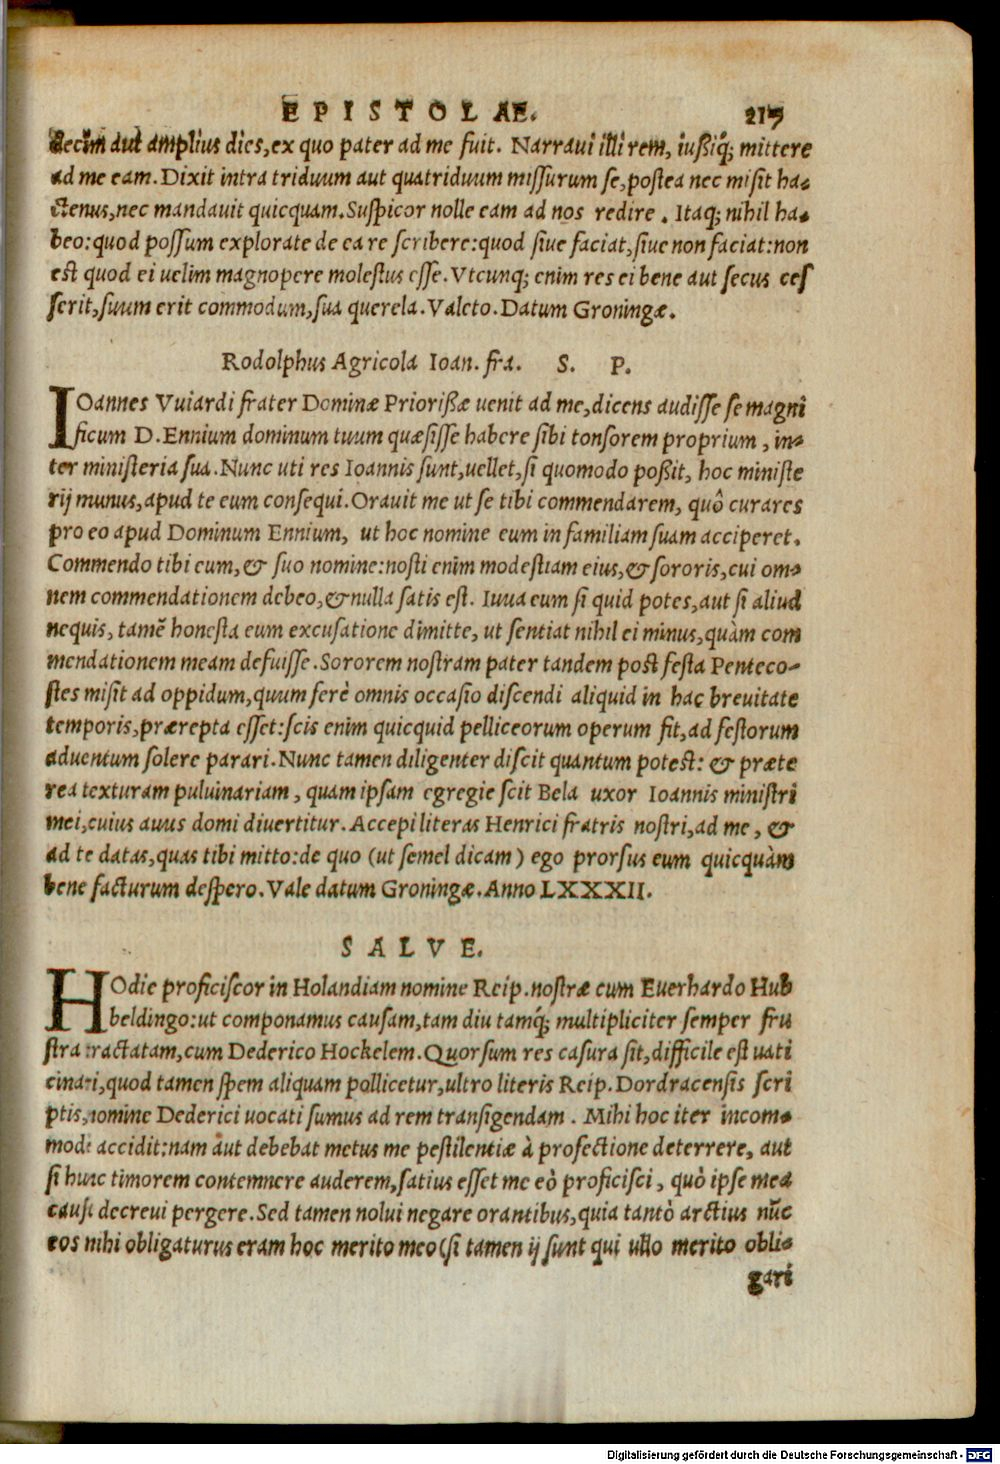 EPISTOLAE. 217
decim aut amplius dies, ex quo pater ad me fuit. Narraui illi rem, iußiq; mittere
ad me eam. Dixit intra triduum aut quatriduum missurum se, postea nec misit ha-
ctenus, nec mandauit quicquam. Suspicor nolle eam ad nos redire. Itaq; nihil ha-
beo: quod possum explorate de ea re scribere: quod siue faciat, siue non faciat: non
est quod ei uelim magnopere molestus esse. Vtcunq; enim res ei bene aut secus ces
serit, suum erit commodum, sua querela. Valeto. Datum Groningæ.
Rodolphus Agricola Ioan. fra. S. P.
IOannes Vuiardi frater Dominæ Priorißæ uenit ad me, dicens audisse se magni
ficum D. Ennium dominum tuum quæsisse habere sibi tonsorem proprium, in-
ter ministeria sua. Nunc uti res Ioannis sunt, uellet, si quomodo poßit, hoc ministe
rij munus, apud te eum consequi. Orauit me ut se tibi commendarem, quô curares
pro eo apud Dominum Ennium, ut hoc nomine eum in familiam suam acciperet.
Commendo tibi eum, & suo nomine: nosti enim modestiam eius, & sororis, cui om-
nem commendationem debeo, & nulla satis est. Iuua eum si quid potes, aut si aliud
nequis, tamẽ honesta eum excusatione dimitte, ut sentiat nihil ei minus, quàm com
mendationem meam defuisse. Sororem nostram pater tandem post festa Penteco-
stes misit ad oppidum, quum ferè omnis occasio discendi aliquid in hac breuitate
temporis, prærepta esset: scis enim quicquid pelliceorum operum fit, ad festorum
aduentum solere parari. Nunc tamen diligenter discit quantum potest: & præte
rea texturam puluinariam, quam ipsam egregie scit Bela uxor Ioannis ministri
mei, cuius auus domi diuertitur. Accepi literas Henrici fratris nostri, ad me, &
ad te datas, quas tibi mitto: de quo (ut semel dicam) ego prorsus eum quicquàm
bene facturum despero. Vale datum Groningæ. Anno LXXXII.
SALVE.
HOdie proficiscor in Holandiam nomine Reip. nostræ cum Euerhardo Hub
beldingo: ut componamus causam, tam diu tamq́; multipliciter semper fru
stra tractatam, cum Dederico Hockelem. Quorsum res casura sit, difficile est uati
cinari, quod tamen spem aliquam pollicetur, ultro literis Reip. Dordracensis scri
ptis, nomine Dederici uocati sumus ad rem transigendam. Mihi hoc iter incom-
mode accidit: nam aut debebat metus me pestilentiæ à profectione deterrere, aut
si hunc timorem contemnere auderem, satius esset me eò proficisci, quò ipse mea
causa decreui pergere. Sed tamen nolui negare orantibus, quia tantò arctius nũc
eos mihi obligaturus eram hoc merito meo (si tamen ij sunt qui ullo merito obli-
gari
Digitalisierung gefördert durch die Deutsche Forschungsgemeinschaft - DFG